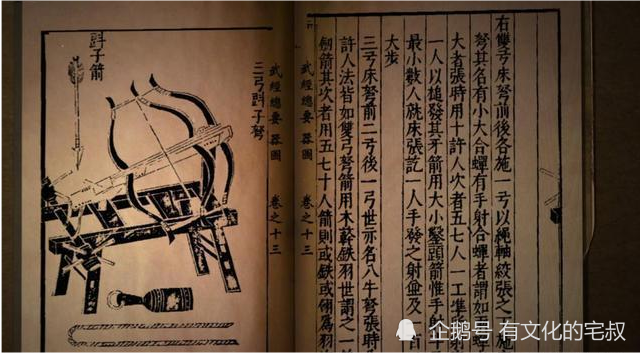 右雙弓床弩前後各施一弓以繩軸絞張之施
弩其名有小大合蟬有手射合蟬者謂如
大者張時用十許人次者五七人一工準
一人以槌發其牙箭用大小鑿頭箭惟手射
最小數人就床張訖一人手發之射及
大步
三弓床弩前二弓後一弓世亦名八牛弩張時
許人法皆如雙弓弩箭用木幹鉄羽世謂之一
箭其次者用五七十人箭則或鉄或翎為羽
武經總要 器圖 卷之十三
武經總要 器圖 卷之十三
三弓㪷子弩
㪷子箭
企鹅号 有文化的宅叔